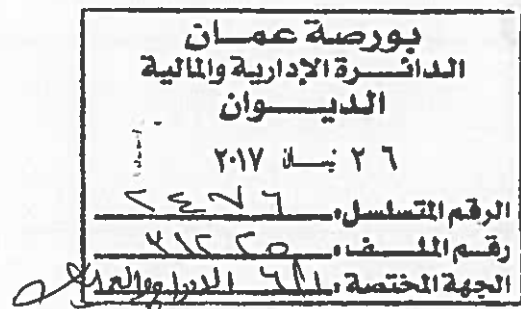 بورصة عمـان
الدائـرة الإدارية والمالية
الديـوان
٢٦ نيسان ٢٠١٧
الرقم المتسلسل: ٢٤٧٦
رقم الملف:
الجهة المختصة: